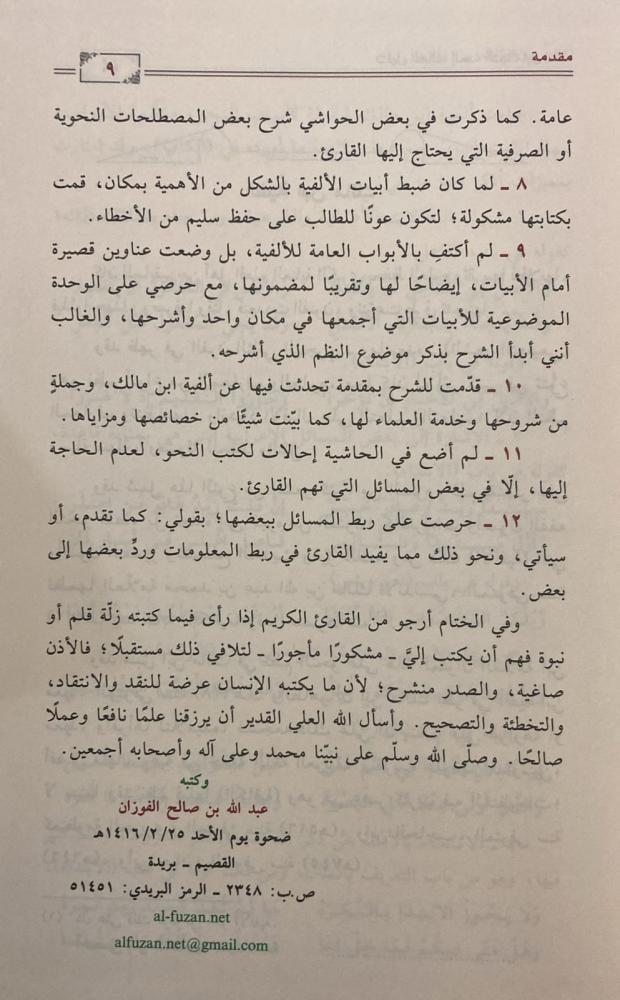 مقدمة
٩
عامة. كما ذكرت في بعض الحواشي شرح بعض المصطلحات النحوية
أو الصرفية التي يحتاج إليها القارئ.
٨ ـ لما كان ضبط أبيات الألفية بالشكل من الأهمية بمكان، قمت
بكتابتها مشكولة؛ لتكون عونًا للطالب على حفظ سليم من الأخطاء.
٩ ـ لم أكتفِ بالأبواب العامة للألفية، بل وضعت عناوين قصيرة
أمام الأبيات، إيضاحًا لها وتقريبًا لمضمونها، مع حرصي على الوحدة
الموضوعية للأبيات التي أجمعها في مكان واحد وأشرحها، والغالب
أنني أبدأ الشرح بذكر موضوع النظم الذي أشرحه.
١٠ ـ قدّمت للشرح بمقدمة تحدثت فيها عن ألفية ابن مالك، وجملةٍ
من شروحها وخدمة العلماء لها، كما بيّنت شيئًا من خصائصها ومزاياها.
١١ ـ لم أضع في الحاشية إحالات لكتب النحو، لعدم الحاجة
إليها، إلّا في بعض المسائل التي تهم القارئ.
١٢ ـ حرصت على ربط المسائل ببعضها؛ بقولي: كما تقدم، أو
سيأتي، ونحو ذلك مما يفيد القارئ في ربط المعلومات وردِّ بعضها إلى
بعض.
وفي الختام أرجو من القارئ الكريم إذا رأى فيما كتبته زلّة قلم أو
نبوة فهم أن يكتب إليَّ ـ مشكورًا مأجورًا ـ لتلافي ذلك مستقبلًا؛ فالأذن
صاغية، والصدر منشرح؛ لأن ما يكتبه الإنسان عرضة للنقد والانتقاد،
والتخطئة والتصحيح. وأسأل الله العلي القدير أن يرزقنا علمًا نافعًا وعملًا
صالحًا. وصلّى الله وسلّم على نبيّنا محمد وعلى آله وأصحابه أجمعين.
وكتبه
عبد الله بن صالح الفوزان
ضحوة يوم الأحد ١٤١٦/٢/٢٥هـ
القصيم ـ بريدة
ص.ب: ٢٣٤٨ ـ الرمز البريدي: ٥١٤٥١
al-fuzan.net
alfuzan.net@gmail.com